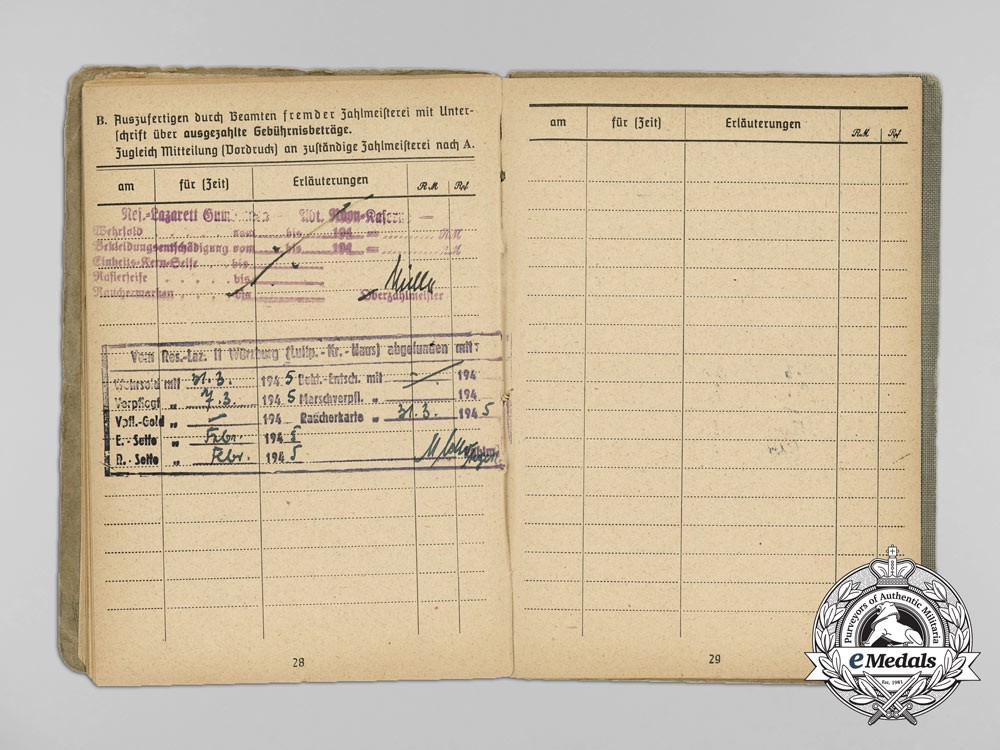 B. Auszufertigen durch Beamten fremder Zahlmeisterei mit Unter-
schrift über ausgezahlte Gebührnisbeträge.
Zugleich Mitteilung (Vordruck) an zuständige Zahlmeisterei nach A.
am für (Zeit) Erläuterungen RM Rpf
Res.-Lazarett Abt. Kaserne
Wehrsold vom bis 194 RM
Bekleidungsentschädigung vom bis 194 RM
Einheits-Kern-Seife bis
Rasierseife bis
Rauchermarken bis Oberzahlmeister
Vom Res.-Laz. II Würzburg (Luitp.-Kr.-Haus) abgefunden mit:
Wehrsold mit 31.3. 1945 Bekl.-Entsch. mit — 194
Verpflegt „ 7.3. 1945 Marschverpfl. „ 194
Vpfl.-Geld „ — 194 Raucherkarte „ 31.3. 1945
E.-Seife „ Febr. 1945
R.-Seife „ Febr. 1945
28
am für (Zeit) Erläuterungen RM Rpf
29
Purveyors of Authentic Militaria
eMedals